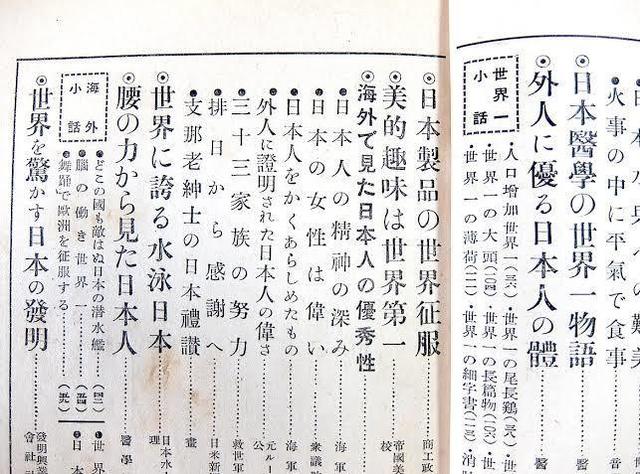 火事の中に平氣で食事
◎日本醫學の世界一物語…醫
◎外人に優る日本人の體…醫
世界一小話
・人口增加世界一
・世界一の尾長鶏
・世界一の大頭
・世界一の長篇物
・世界一の薄荷
・世界一の細字書
◎日本製品の世界征服…商工政
◎美的趣味は世界第一…帝國美校
◎海外で見た日本人の優秀性
●日本人の精神の深み…海軍
●日本の女性は偉い…衆議
●日本人をかくあらしめたもの…海軍
●外人に證明された日本人の偉さ…元ルー公
●三十三家族の努力…救世軍
●排日から感謝へ…日米新
●支那老紳士の日本禮讃…畫
◎世界に誇る水泳日本…日本水理
◎腰の力から見た日本人…醫學
海外小話
●どこの國も敵はぬ日本の潜水艦
●腦の働き世界一
●舞踊で歐洲を征服する
●世界
●日本
◎世界を驚かす日本の發明…發明興業會社